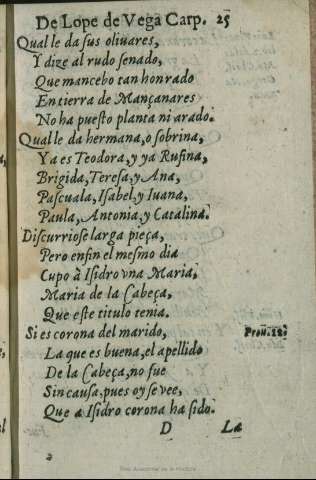 De Lope de Vega Carp. 25
Qual le da sus oliuares,
Y dize al rudo senado,
Que mancebo tan honrado
En tierra de Mançanares
No ha puesto planta ni arado.
Qual le da hermana, o sobrina,
Ya es Teodora, y ya Rufina,
Brigida, Teresa, y Ana,
Pascuala, Isabel, y Iuana,
Paula, Antonia, y Catalina.
Discurriose larga pieça,
Pero en fin el mesmo dia
Cupo à Isidro vna Maria,
Maria de la Cabeça,
Que este titulo tenia.
Si es corona del marido,
La que es buena, el apellido
De la Cabeça, no fue
Sin causa, pues oy se vee,
Que a Isidro corona ha sido.
D La